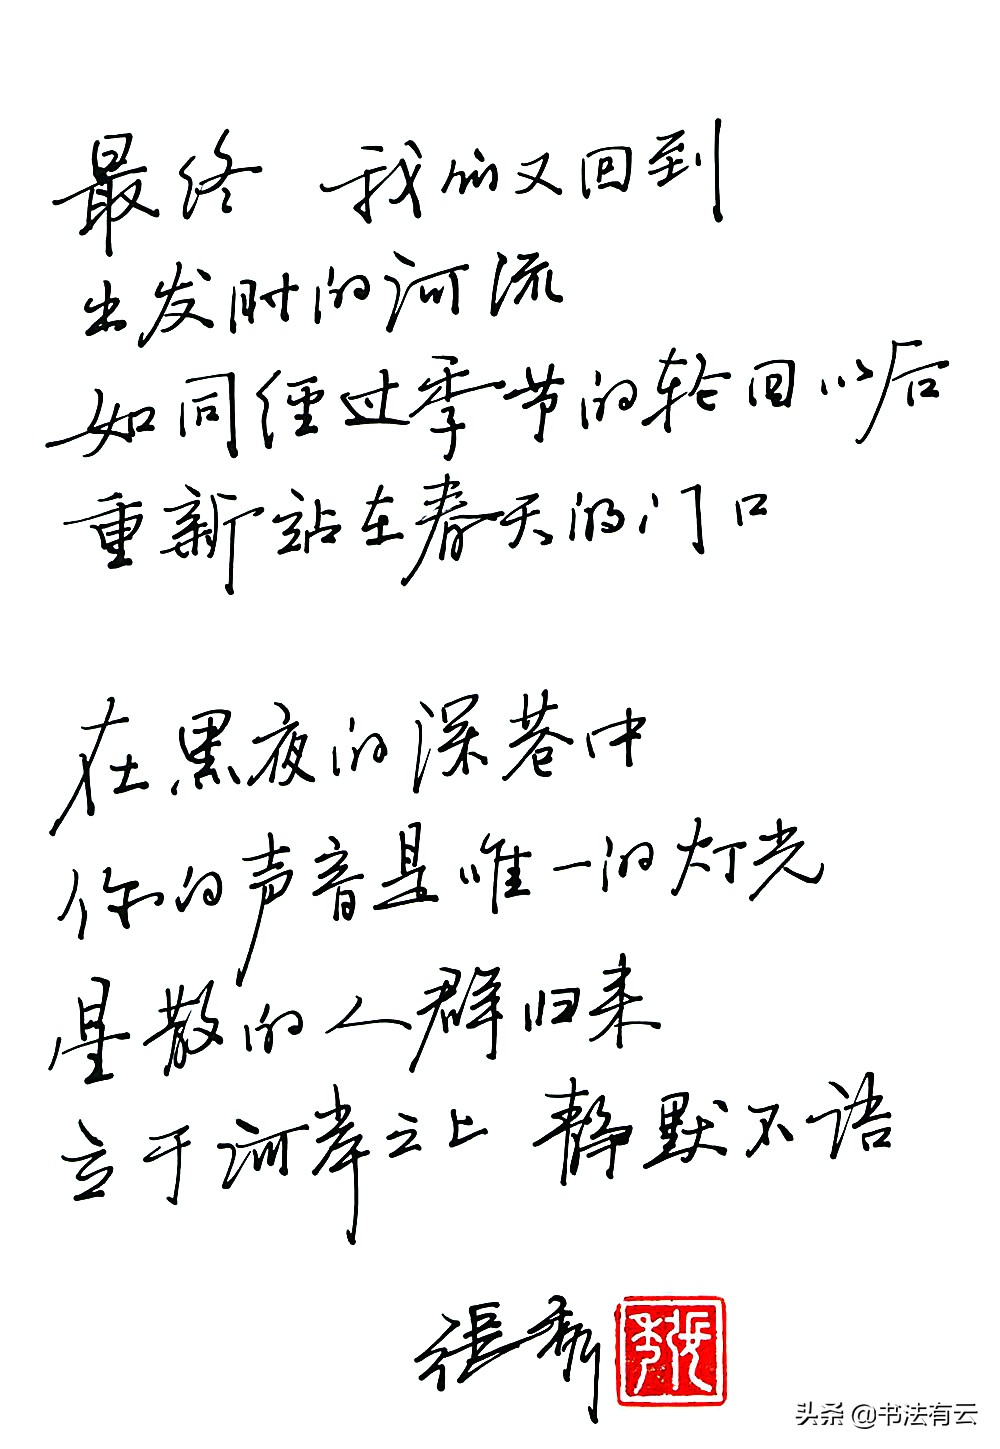 最终 我们又回到
出发时的河流
如同经过季节的轮回以后
重新站在春天的门口
在黑夜的深巷中
你的声音是唯一的灯光
星散的人群归来
立于河岸之上 静默不语
张秀
头条 @书法有云